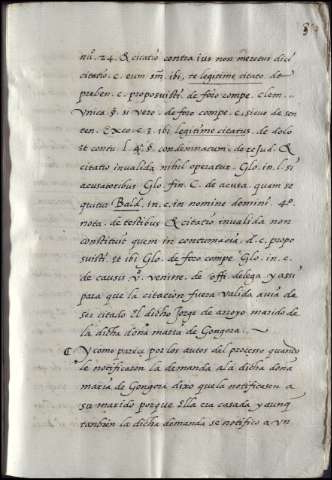 nu. 24. & citatio contra ius non meretur dici
citatio. c. eum ibi, te legitime citato de
preben. c. proposuisti. de foro compe. clem.
vnica §. si vero. de foro compe. c. sicut de sen
ten. Exco. c. 3. ibi, legitime citatus. de dolo
et contu. l. 4. §. condemnatum. de re Jud. &
citatio invalida nihil operatur. Glo. in. l. si
acusatoribus Glo. fin. C. de acusa. quam se
quitur Bald. in. c. in nomine domini. 4º.
nota. de testibus & citatio invalida non
constituit quem in contumacia. d. c. propo
suisti. et ibi Glo. de foro compe. Glo. in. c.
de causis v. venire. de offi. delega. y asi
para que la citacion fuera valida avia de
ser citado El dicho Jorge de arroyo marido de
la dicha doña maria de Gongora.
Y como parece por los autos del processo quando
le notificaron la demanda a la dicha doña
maria de Gongora dixo que la notificasen a
su marido porque Ella era casada y aunq
tambien la dicha demanda se notifico a vn